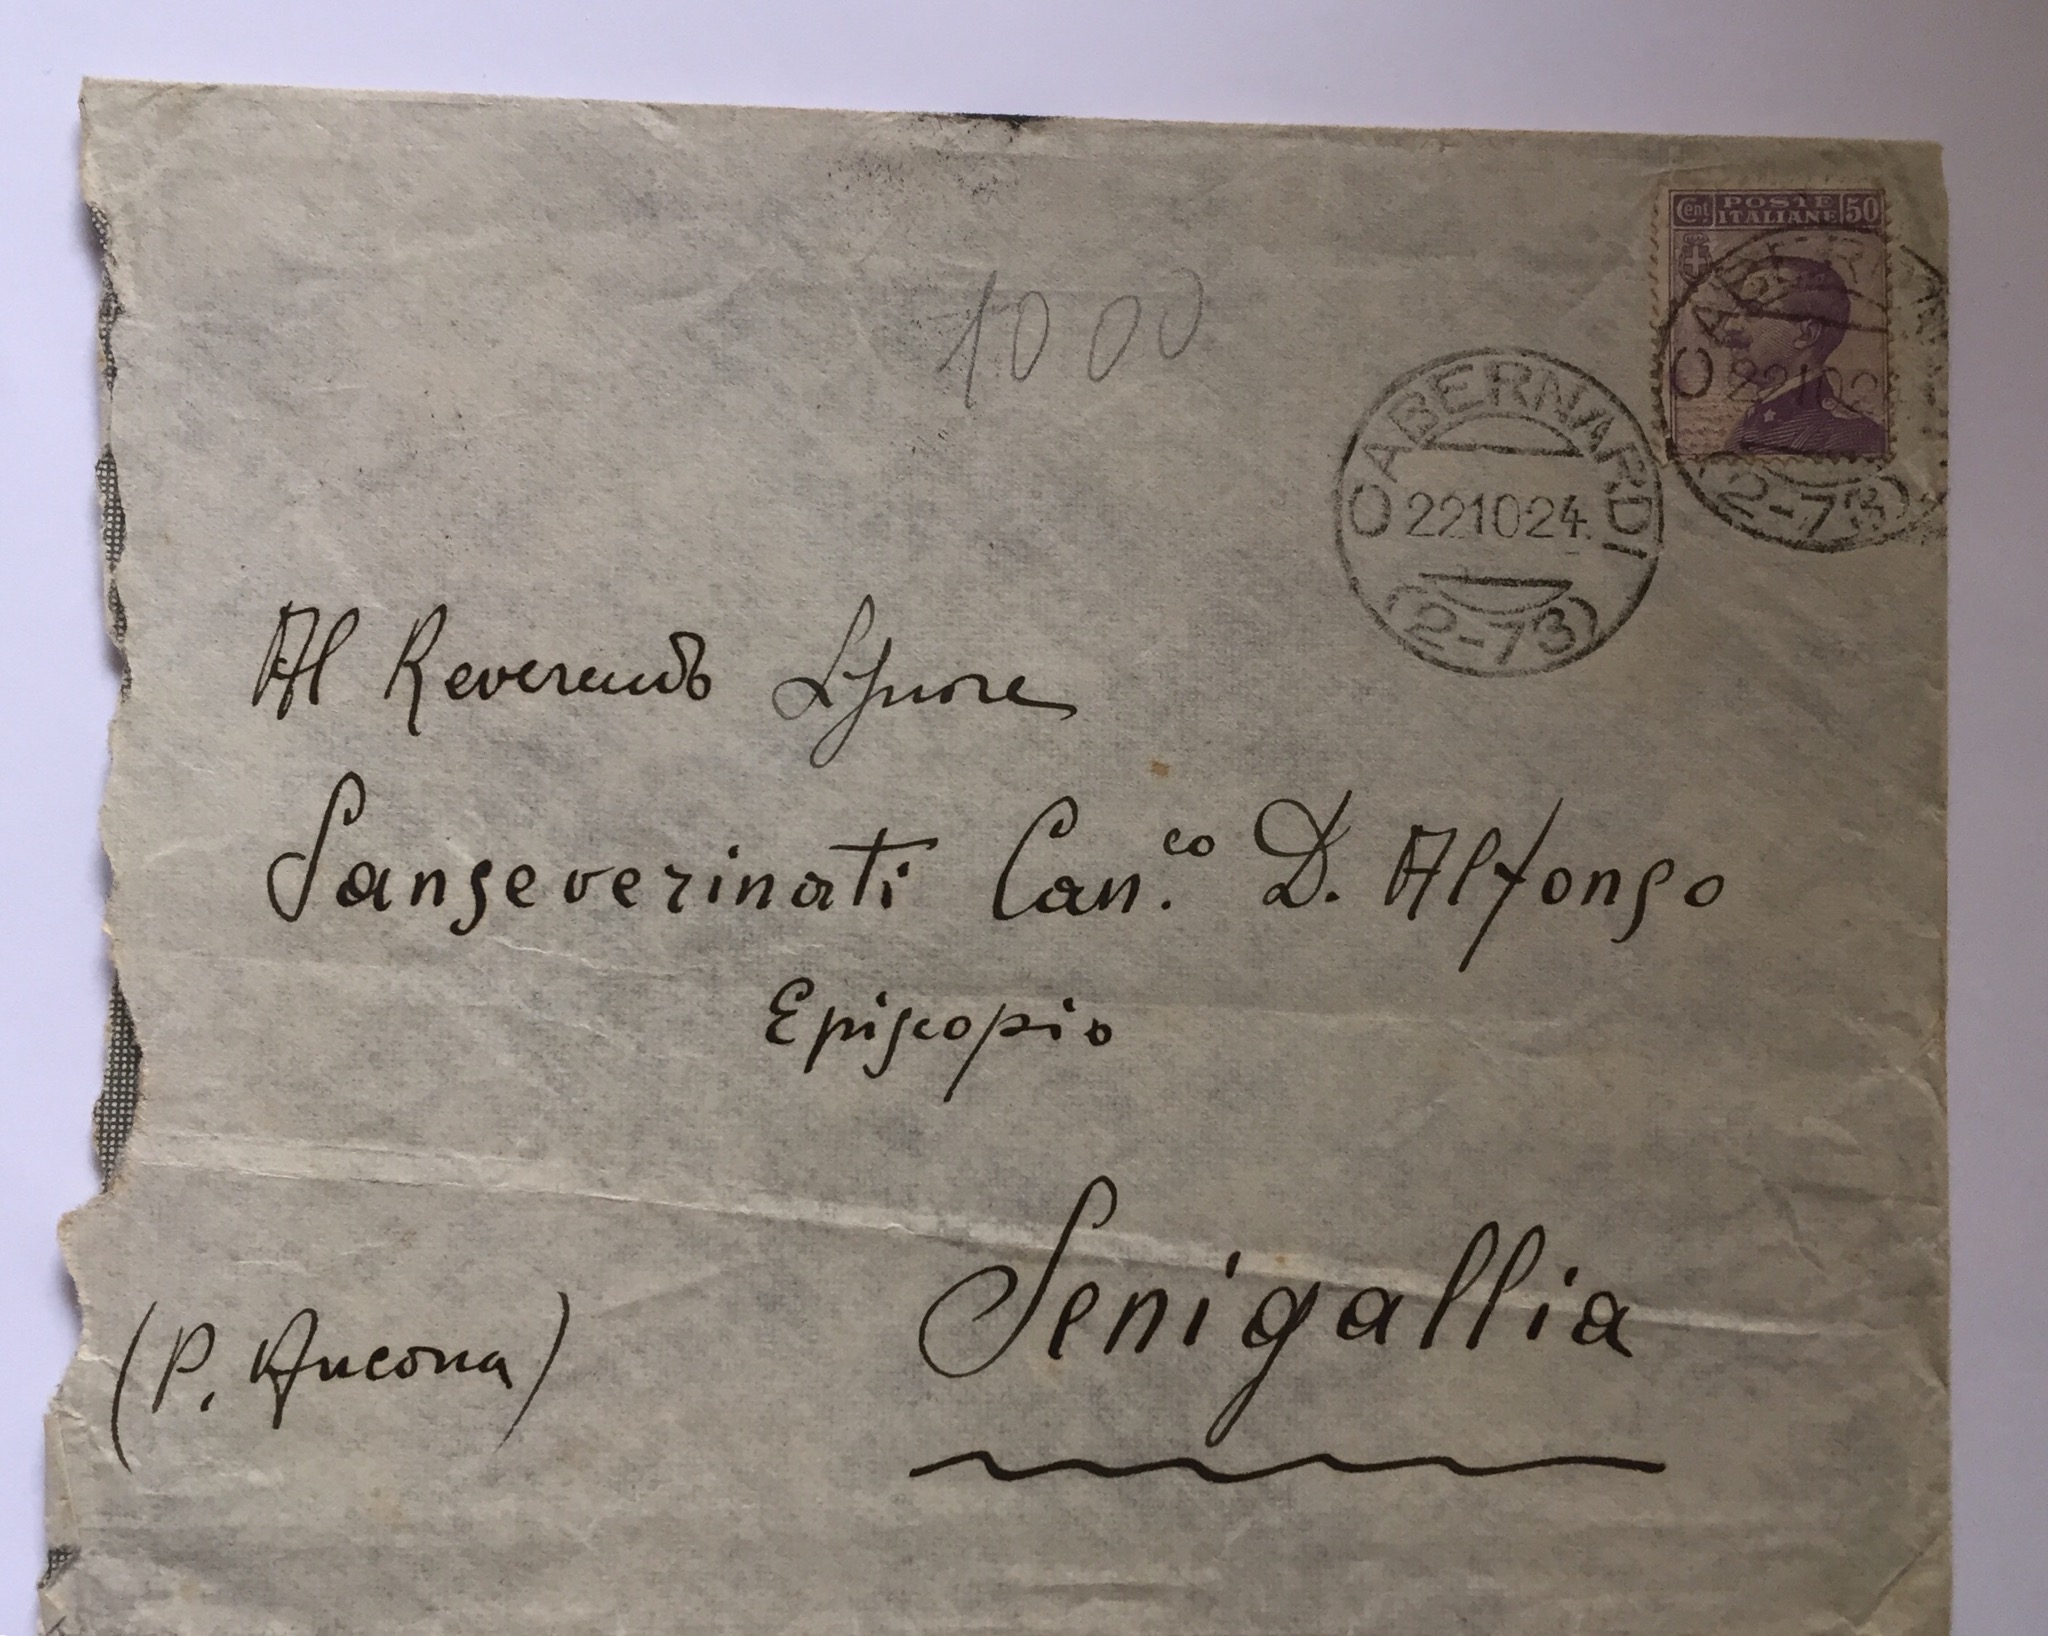 Cent. POSTE ITALIANE 50
1000
CABERNARDI
22 10 24
(2-73)
CABERNARDI
22 10 2
(2-73)
Al Reverendo Signore
Sanseverinati Can.co D. Alfonso
Episcopio
Senigallia
(P. Ancona)